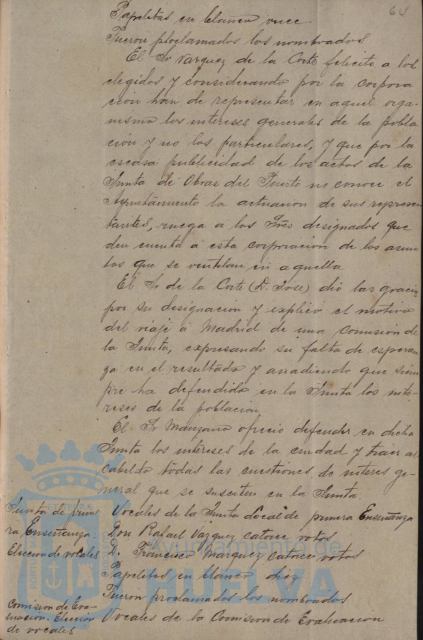 68
Papeletas en blanco once
Fueron proclamados los nombrados
El Sr Vazquez de la Corte felicitó a los
elegidos y considerando por la corpora
cion han de representar en aquel orga-
nismo los intereses generales de la pobla
ción y no los particulares, y que por la
escasa publicidad de los actos de la
Junta de Obras del Puerto no conoce el
Ayuntamiento la actuacion de sus represen
tantes, ruega a los Sres designados que
den cuenta á esta corporacion de los asun
tos que se ventilan en aquella
El Sr de la Corte (D. Jose) dió las gracias
por su designación y explicó el motivo
del viaje á Madrid de una comision de
la Junta, expresando su falta de esperan
za en el resultado y anadiendo que siem
pre ha defendido en la Junta los inte-
reses de la población.
El Sr Manzano ofreció defender en dicha
Junta los intereses de la ciudad y traer al
cabildo todas las cuestiones de interes ge-
neral que se susciten en la Junta.
Junta de prime
ra Enseñanza.
Eleccion de vocales
Vocales de la Junta local de primera Enseñanza
Don Rafael Vazquez catorce votos
D. Francisco Marquez catorce votos
Papeletas en blanco diez
Fueron proclamados los nombrados
Comision de Eva-
luacion. Eleccion
de vocales
Vocales de la Comision de Evaluacion
Ayuntamiento de
HUELVA